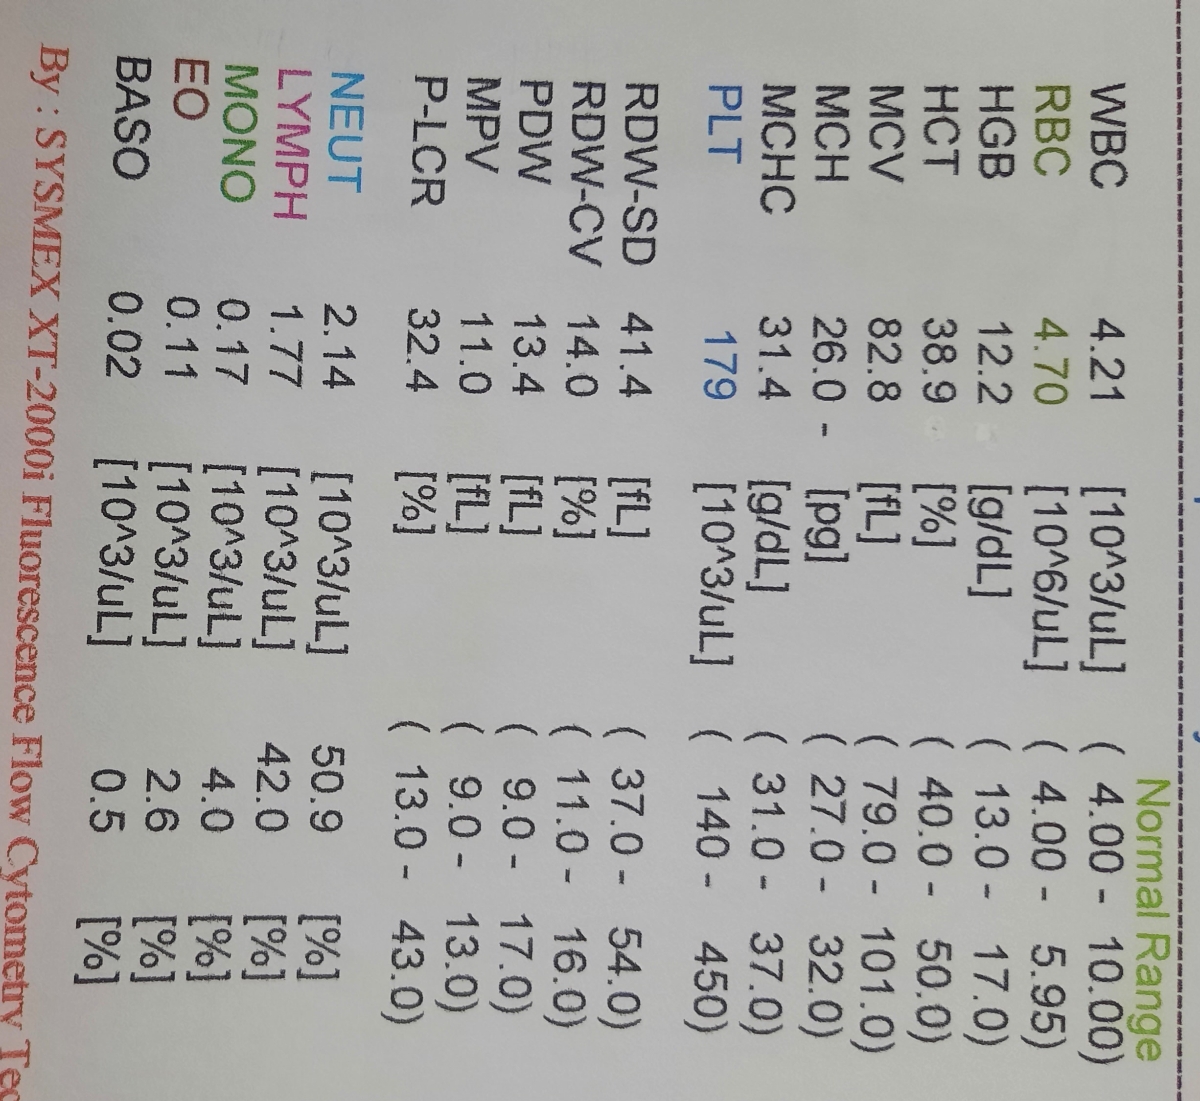 Normal Range
WBC 4.21 [10^3/uL] ( 4.00 - 10.00)
RBC 4.70 [10^6/uL] ( 4.00 - 5.95)
HGB 12.2 [g/dL] ( 13.0 - 17.0)
HCT 38.9 [%] ( 40.0 - 50.0)
MCV 82.8 [fL] ( 79.0 - 101.0)
MCH 26.0 - [pg] ( 27.0 - 32.0)
MCHC 31.4 [g/dL] ( 31.0 - 37.0)
PLT 179 [10^3/uL] ( 140 - 450)
RDW-SD 41.4 [fL] ( 37.0 - 54.0)
RDW-CV 14.0 [%] ( 11.0 - 16.0)
PDW 13.4 [fL] ( 9.0 - 17.0)
MPV 11.0 [fL] ( 9.0 - 13.0)
P-LCR 32.4 [%] ( 13.0 - 43.0)
NEUT 2.14 [10^3/uL] 50.9 [%]
LYMPH 1.77 [10^3/uL] 42.0 [%]
MONO 0.17 [10^3/uL] 4.0 [%]
EO 0.11 [10^3/uL] 2.6 [%]
BASO 0.02 [10^3/uL] 0.5 [%]
By : SYSMEX XT-2000i Fluorescence Flow Cytometry Tec